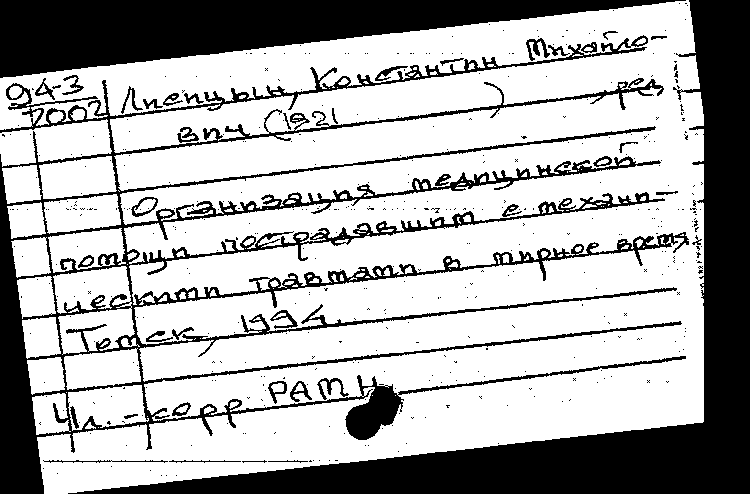 94-3 Лисицын, Константин Михайло-
2002 вич (1921 ) , ред
Организация медицинской
помощи пострадавшим с механи-
ческими травмами в мирное время
Томск, 1994.
Чл.-корр. РАМН